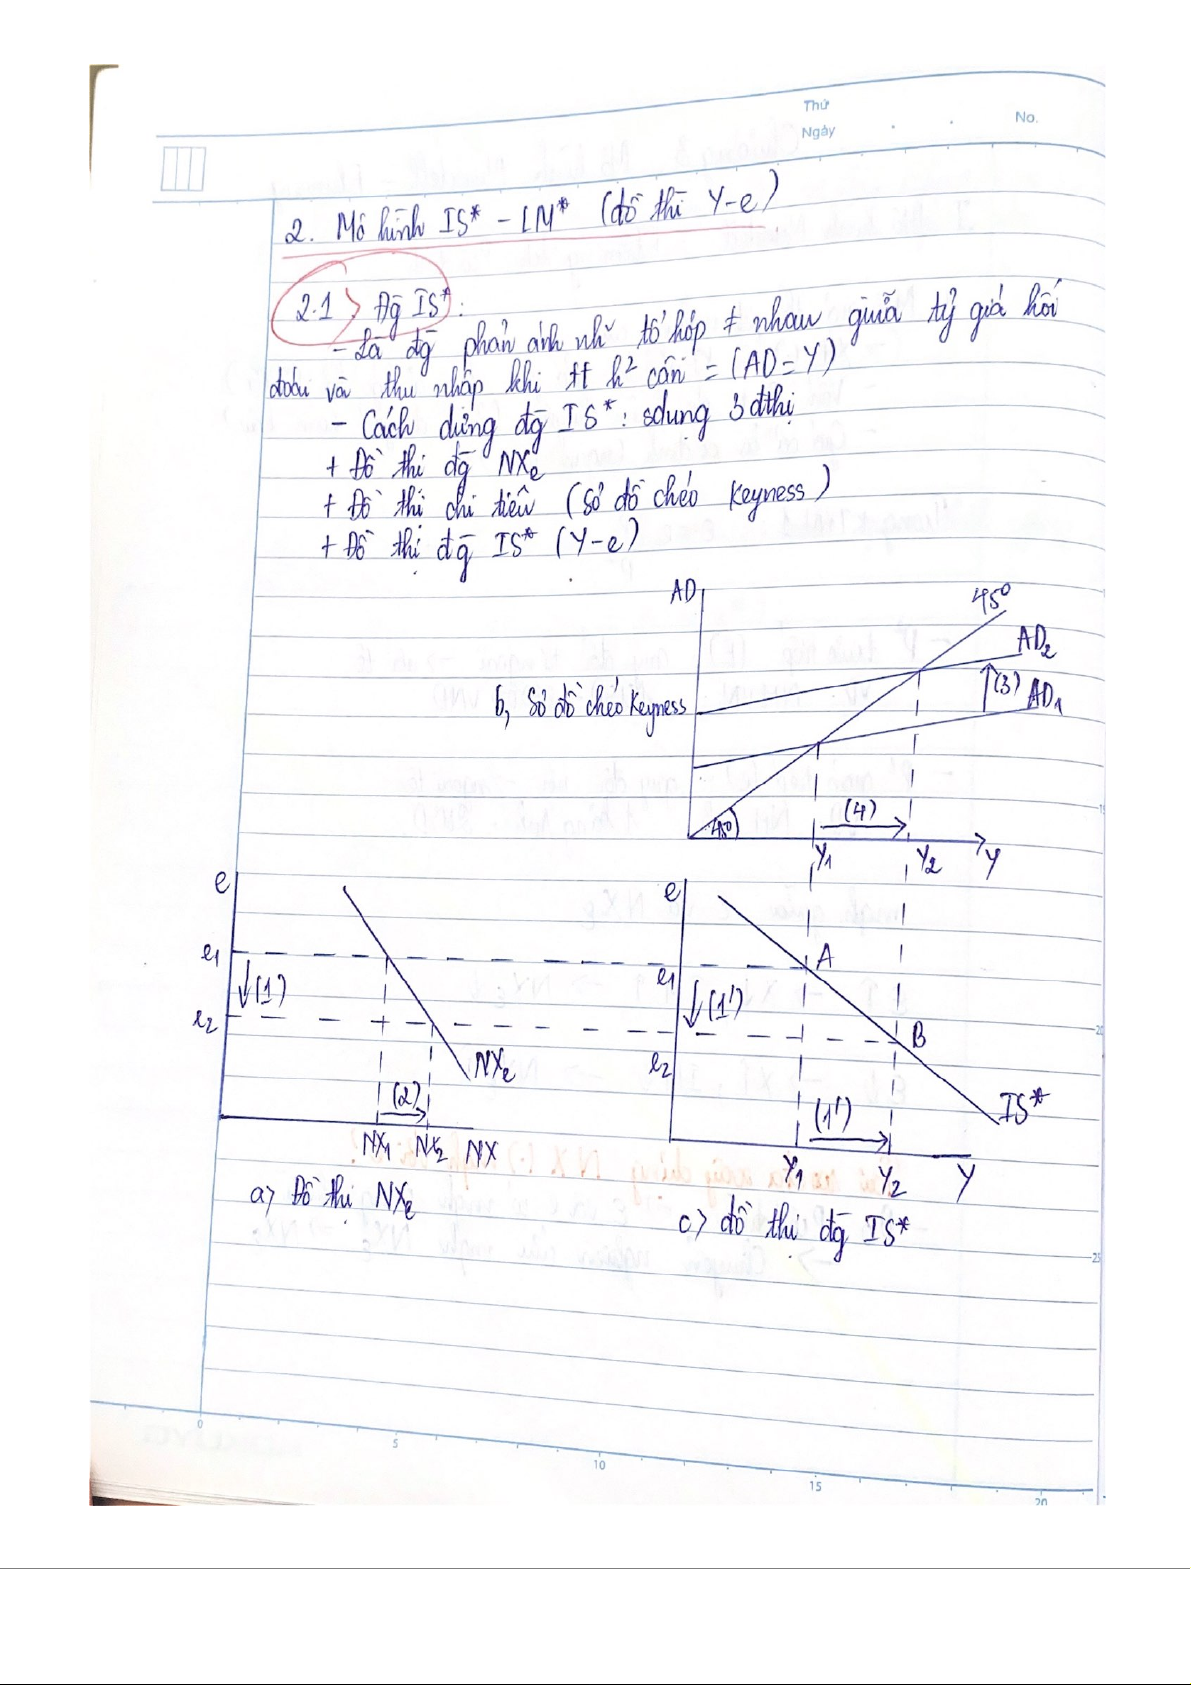 Thứ
Ngày
No.
2. Mô hình IS* - LM* (đồ thị Y-e)
2.1> Đg IS*:
- Là đg phản ánh nh~ tổ hợp ≠ nhau giữa tỷ giá hối
đoái và thu nhập khi tt h² cân = (AD=Y)
- Cách dựng đg IS*: sdung 3 đthị
+ Đồ thị đg NXe
+ Đồ thị chi tiêu (Sơ đồ chéo Keyness)
+ Đồ thị đg IS* (Y-e)
AD
45°
AD2
b, Sơ đồ chéo Keyness
(3)
AD1
45°
(4)
Y1
Y2
Y
e
e1
(1)
e2
NXe
(2)
NX1 NX2 NX
a> Đồ thị NXe
e
A
e1
(1')
B
e2
IS*
(1')
Y1
Y2
Y
c> đồ thị đg IS*
0
5
10
15
20
15
20
25